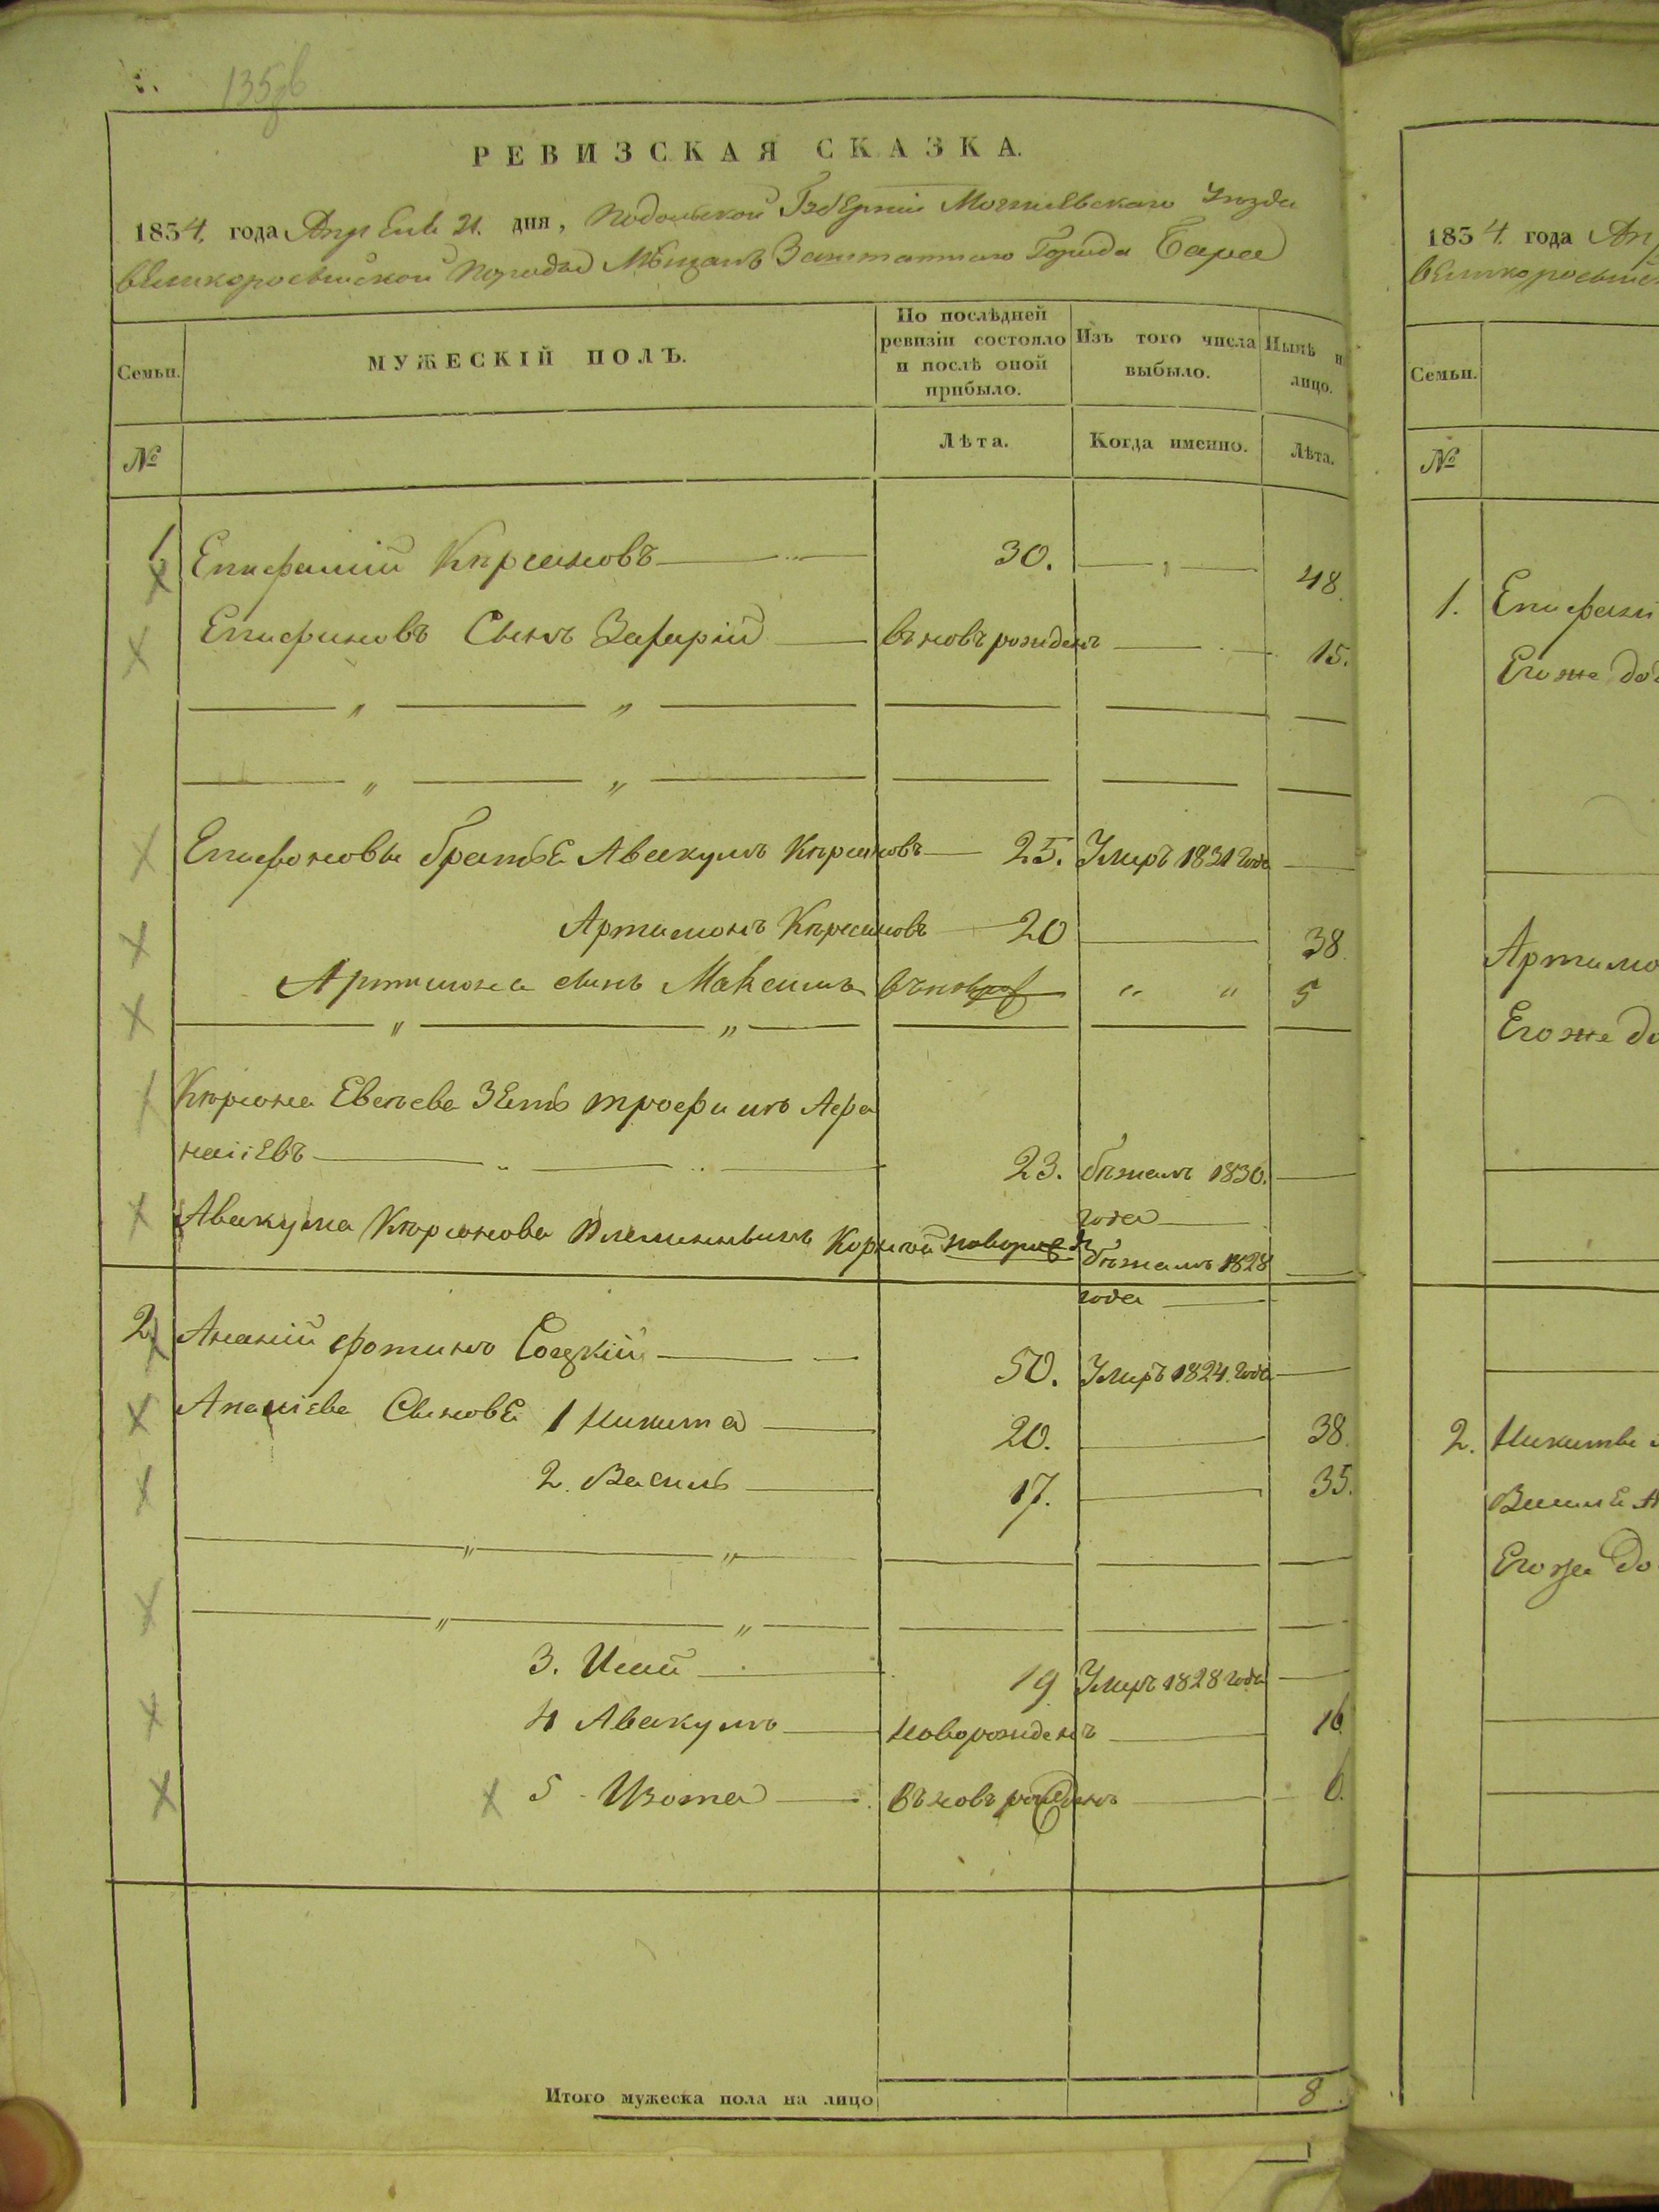 135об
РЕВИЗСКАЯ СКАЗКА.
1834. года Апреля 21. дня, Подольской Губернии Могилевскаго Уезда
великоросыйской породы Мещанъ Заштатнаго Города Бара
Семьи.
МУЖЕСКІЙ ПОЛЪ.
По послѣдней ревизіи состояло и послѣ оной прибыло.
Изъ того числа выбыло.
Нынѣ н лицо.
№
Лѣта.
Когда именно.
Лѣта.
1 Епифаний Кирсановъ 30. 48.
Епифановъ Сынъ Захарій въновъ рожденъ 15.
Епифановы братьЕ Авакумъ Кирсановъ 25. Умиръ 1831 года
Артамонъ Кирсановъ 20 38.
Артамона сынъ Максимъ въновъ 5
Евсѣева ЗЕть трофимъ Афа
насіЕвъ 23. бѣжалъ 1830.
года
Авакума Кирсанова Племянникъ Корнѣй бѣжалъ 1828
года
2 Ананій фотинъ 50. Умиръ 1824. года
Ананіева СыновЕ 1 Никита 20. 38.
2. Василь 17. 35.
3. Исай 19 Умиръ 1828 года
4 Авакумъ новорожденъ 16.
5 Изота въновъ рожденъ 6.
Итого мужеска пола на лицо 8.
1834. года Ап
великоросыйс
Семьи.
№
1. Епифани
Егоже до
Артамо
Егоже до
2. Никиты
Егоже до